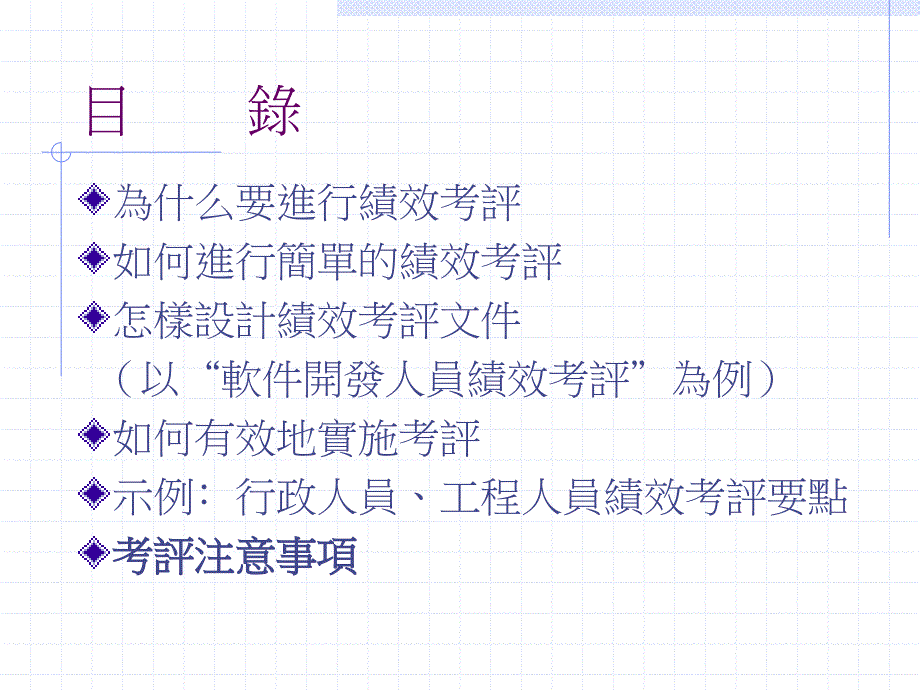 目 錄
為什么要進行績效考評
如何進行簡單的績效考評
怎樣設計績效考評文件
（以“軟件開發人員績效考評”為例）
如何有效地實施考評
示例：行政人員、工程人員績效考評要點
考評注意事項